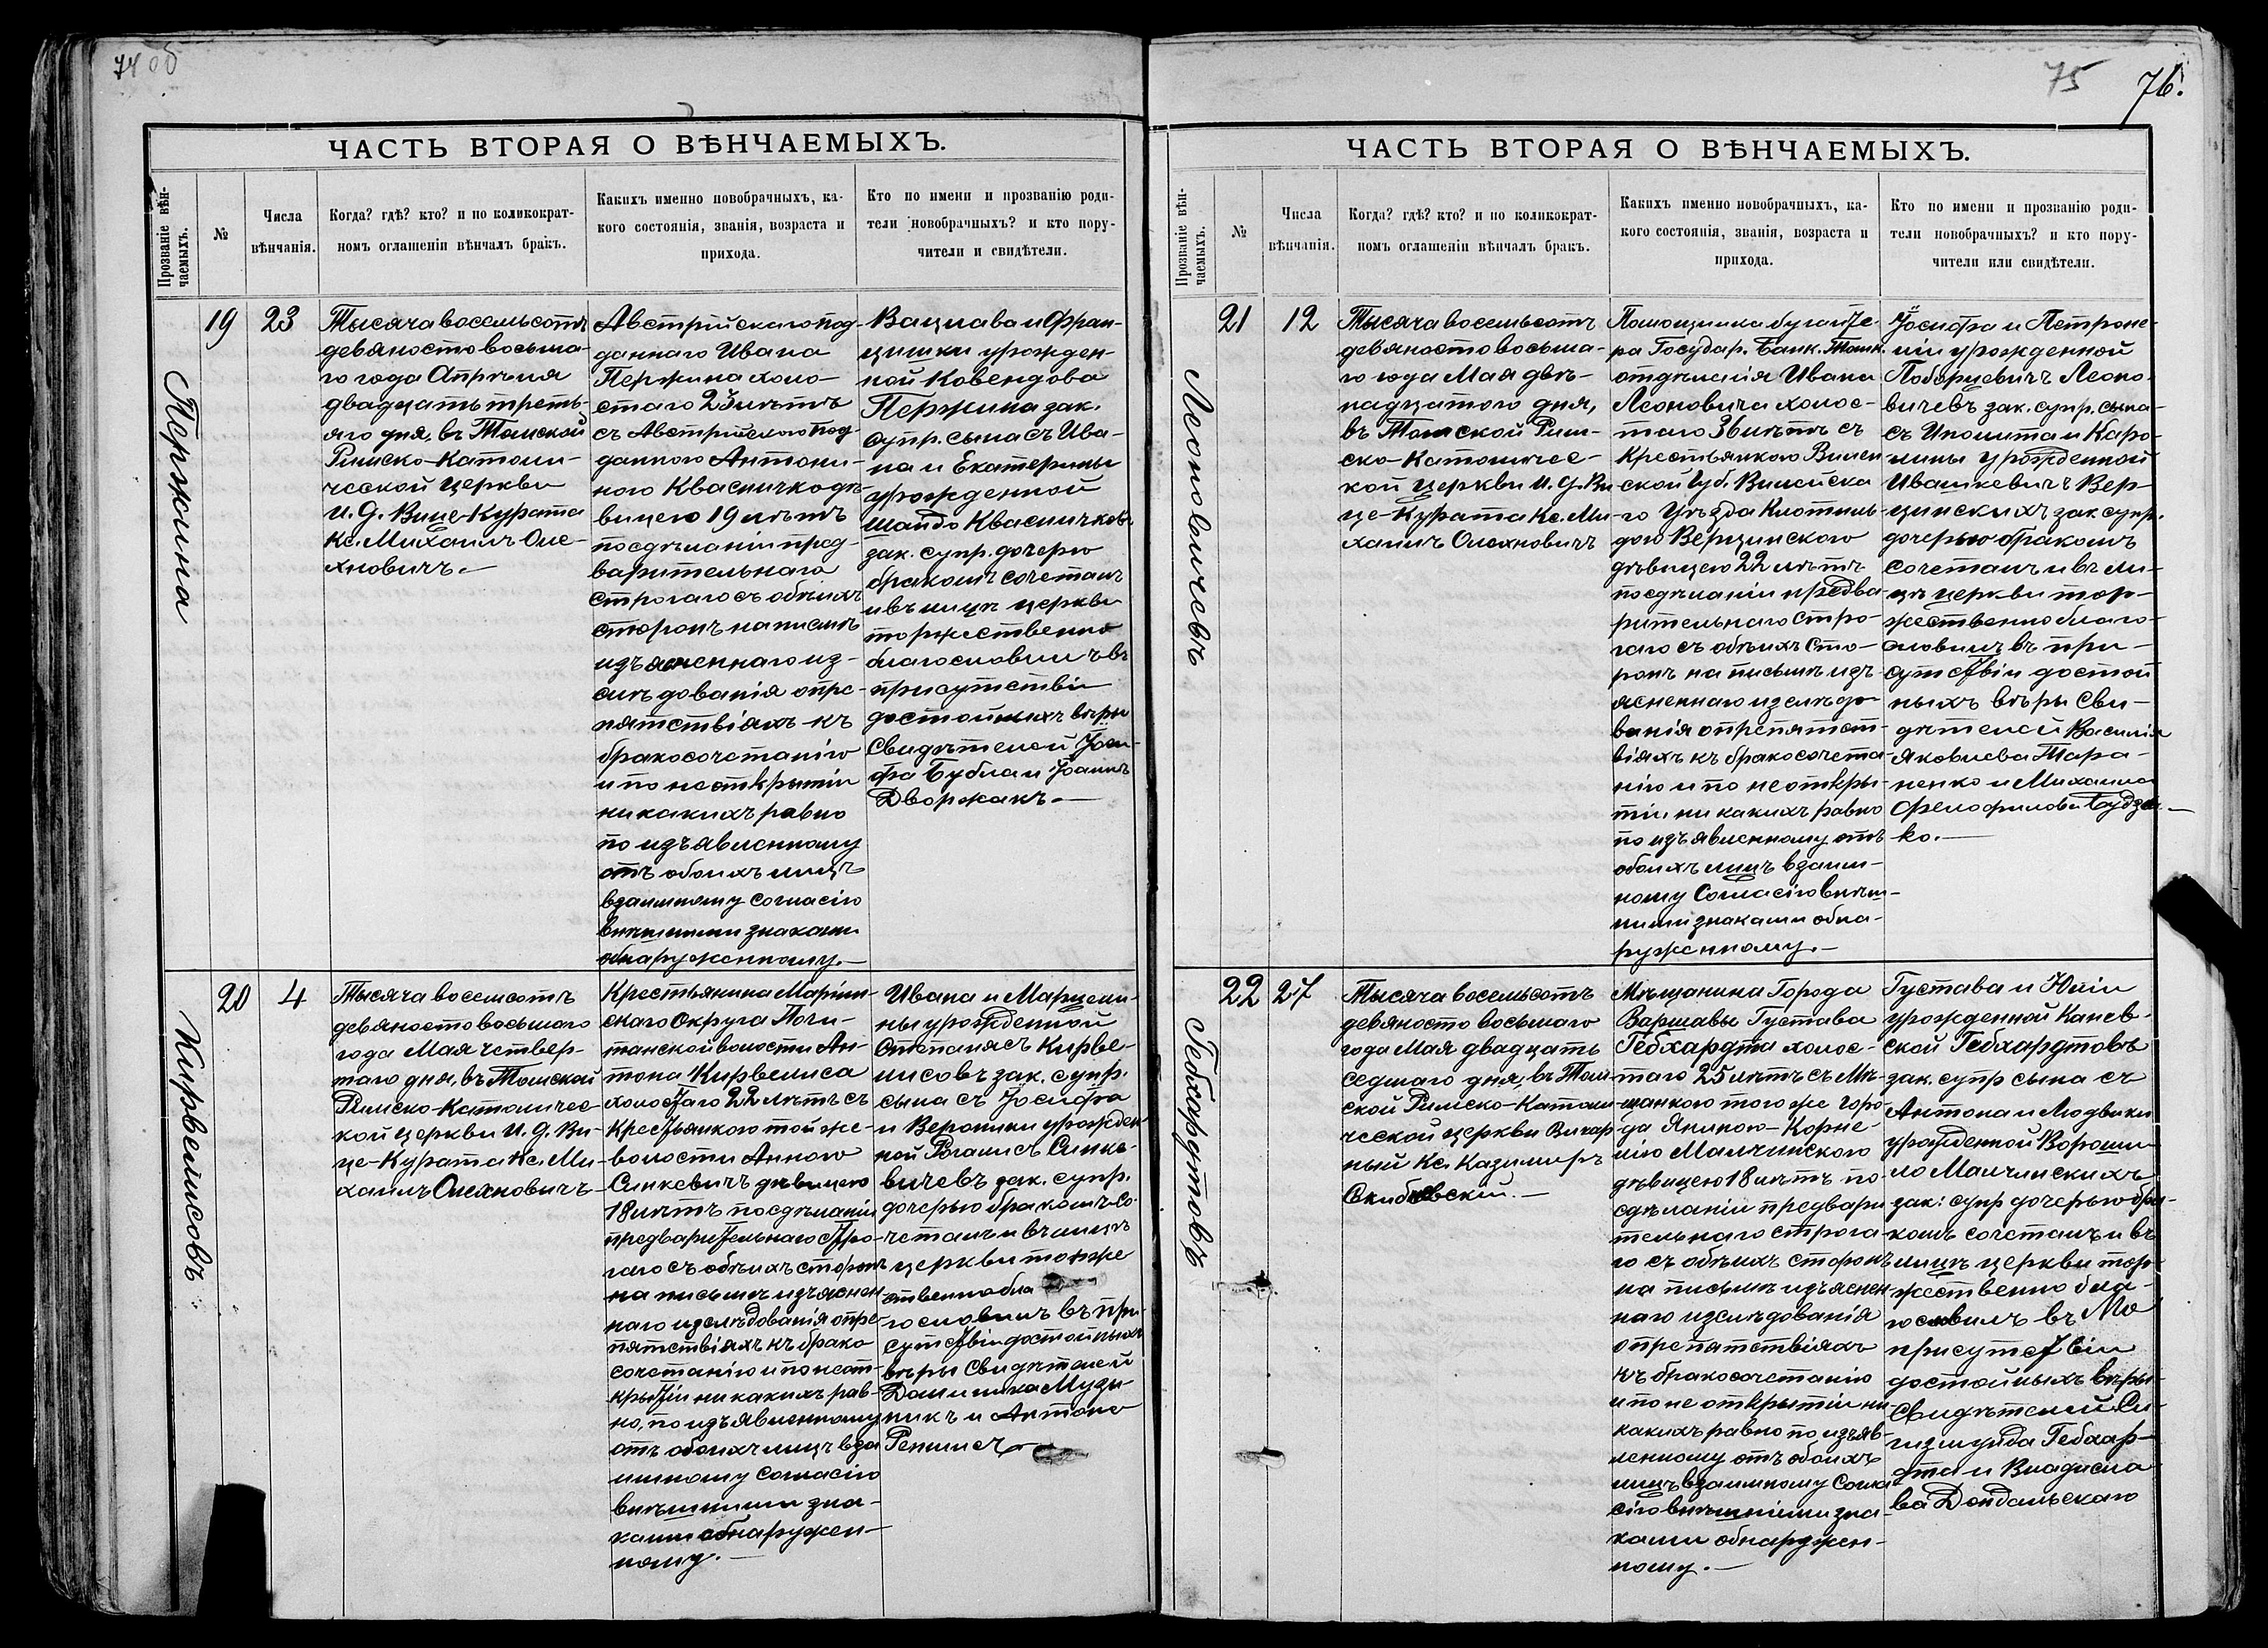 74 об
ЧАСТЬ ВТОРАЯ О ВѢНЧАЕМЫХЪ.
Прозваніе вѣн-
чаемыхъ.
№
Числа
вѣнчанія.
Когда? гдѣ? кто? и по коликократ-
номъ оглашеніи вѣнчалъ бракъ.
Какихъ именно новобрачныхъ, ка-
кого состоянія, званія, возраста и
прихода.
Кто по имени и прозванію роди-
тели новобрачныхъ? и кто пору-
чители и свидѣтели.
Пержина
19
23
Тысяча восемьсотъ
девяносто восьма-
го года Апрѣля
двадцать треть-
яго дня, въ Томской
Римско-Католи-
ческой церкви
И. д. Вице-Курата
Кс. Михаилъ Оле-
хновичъ.—
Австрійскаго под-
даннаго Ивана
Пержина холо-
стаго 23 лѣтъ
съ Австрійскаго под-
даннаго Антони-
ною Квасничко дѣ-
вицею 19 лѣтъ
по сдѣланіи пред-
варительнаго
строгаго съ обѣихъ
сторонъ на письмѣ
изъясненнаго из-
слѣдованія о пре-
пятствіяхъ къ
бракосочетанію
и по неоткрытіи
никакихъ равно
по изъявленному
отъ обоихъ лицъ
взаимному согласію
внѣшними знаками
обнаруженному.—
Вацлава и Фран-
цишки урожден-
ной Ковендова
Пержина зак.
супр. сына съ Ива-
на и Екатерины
урожденной
Шайдо Квасничковъ
зак. супр. дочерью
бракомъ сочеталъ
и въ лицѣ церкви
торжественно
благословилъ въ
присутствіи
достойныхъ вѣры
Свидѣтелей Іоси-
фа Бубла и Іоаннъ
Дворжакъ.—
Кирвелисовъ
20
4
Тысяча восемсотъ
девяносто восьмаго
года Мая четвер-
таго дня, въ Томской
Римско-Католичес-
кой церкви И. д. Ви-
це-Курата Кс. Ми-
хаилъ Олехновичъ
Крестьянина Маріин-
скаго Округа Почи-
танской волости Ан-
тона Кирвелиса
холостаго 22 лѣтъ съ
Крестьянкою той же
волости Анною
Синкевичъ дѣвицею
18 лѣтъ по сдѣланіи
предварительнаго стро-
гаго съ обѣихъ сторонъ
на письмѣ изъяснен
наго изслѣдованія о пре-
пятствіяхъ къ брако
сочетанію и по неот-
крытіи никакихъ рав-
но, по изъявленному
отъ обоихъ лицъ вза
имному согласію
внѣшними зна-
ками обнаружен-
ному.—
Ивана и Марцели-
ны урожденной
Степалясъ Кирве-
лисовъ зак. супр.
сына съ Іосифа
и Вероники урожден
ной Рогалисъ Синке-
вичевъ зак. супр.
дочерью бракомъ со-
четалъ и въ лицѣ
церкви торже
ственно бла
гословилъ въ при-
сутствіи достойныхъ
вѣры Свидѣтелей
Доминика Музы-
никъ и Антона
Репшисъ
75
76.
ЧАСТЬ ВТОРАЯ О ВѢНЧАЕМЫХЪ.
Прозваніе вѣн-
чаемыхъ.
№
Числа
вѣнчанія.
Когда? гдѣ? кто? и по коликократ-
номъ оглашеніи вѣнчалъ бракъ.
Какихъ именно новобрачныхъ, ка-
кого состоянія, званія, возраста и
прихода.
Кто по имени и прозванію роди-
тели новобрачныхъ? и кто пору-
чители или свидѣтели.
Леоновичевъ
21
12
Тысяча восемьсотъ
девяносто восьма-
го года Мая двѣ-
надцатого дня,
въ Томской Рим-
ско-Католичес-
кой церкви И. д. Ви
це-Курата Кс. Ми-
хаилъ Олехновичъ
Помощника бухгалте-
ра Государ. Банк. Томск.
отдѣленія Ивана
Леоновича холос-
таго 36 лѣтъ съ
Крестьянкою Вилен
ской Губ. Вилейска
го Уѣзда Клотиль-
дою Верцинского
дѣвицею 22 лѣтъ
по сдѣланіи предва
рительнаго стро-
гаго съ обѣихъ сто-
ронъ на письмѣ изъ
ясненнаго изслѣдо
ванія о препятст-
віяхъ къ бракосочета-
нію и по неоткры-
тіи никакихъ равно
по изъявленному отъ
обоихъ лицъ взаим-
ному Согласію внѣш-
ними знаками обна-
руженному.—
Іосифа и Петроне-
ліи урожденной
Поборцевичъ Леоно-
вичевъ зак. супр. сына
съ Иполита и Каро-
лины урожденной
Ивашкевичъ Вер-
цинскихъ зак. супр.
дочерью бракомъ
сочеталъ и въ ли-
цѣ церкви тор-
жественно благо-
словилъ въ при-
сутствіи достой
ныхъ вѣры Сви-
дѣтелей Василія
Яковлева Тара-
ненко и Михаила
Феофилова Будзь-
ко.—
Гебхардтовъ
22
27
Тысяча восемьсотъ
девяносто восьмаго
года Мая двадцать
седмаго дня, въ Том-
ской Римско-Катали-
ческой церкви Викар
ный Кс. Казимиръ
Скибневскій.—
Мѣщанина Города
Варшавы Густава
Гебхардта холос-
таго 25 лѣтъ съ Мѣ-
щанкою того же горо-
да Яниною-Корне-
ліо Малчинского
дѣвицею 18 лѣтъ по
сдѣланіи предвари
тельнаго строга-
го съ обѣихъ сторонъ
на письмѣ изъяснен
наго изслѣдованія
о препятствіяхъ
къ бракосочетанію
и по не открытіи ни
какихъ равно по изъяв-
ленному отъ обоихъ
лицъ взаимному Согла
сію внѣшними зна-
ками обнаружен-
ному.—
Густава и Юліи
урожденной Канев-
ской Гебхардтовъ
зак. супр сына съ
Антона и Людвики
урожденной Вороши
ло Малчинскихъ
зак: супр дочерью бра-
комъ сочеталъ и въ
лицѣ церкви тор-
жественно бла-
гословилъ въ
присутствіи
достойныхъ вѣры
Свидѣтелей Си-
гизмунда Гебхар-
дта и Владисла
ва Дондальскаго